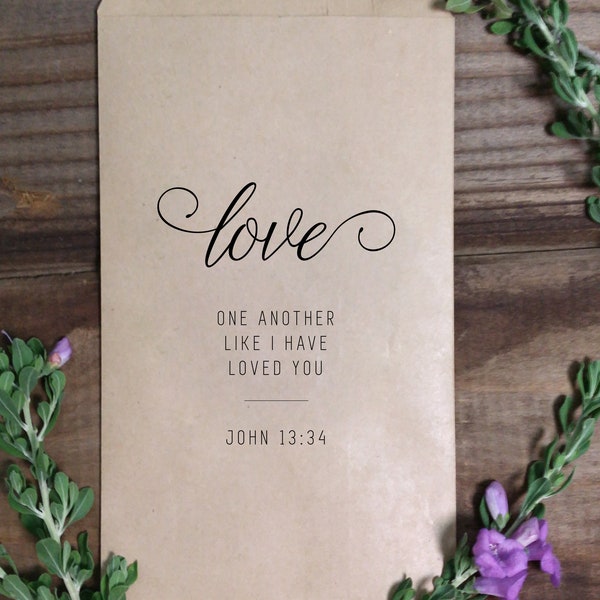 love
ONE ANOTHER
LIKE I HAVE
LOVED YOU
JOHN 13:34